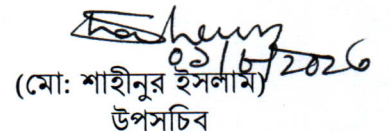 ০১/৮/2026
(মো: শাহীনুর ইসলাম)
উপসচিব